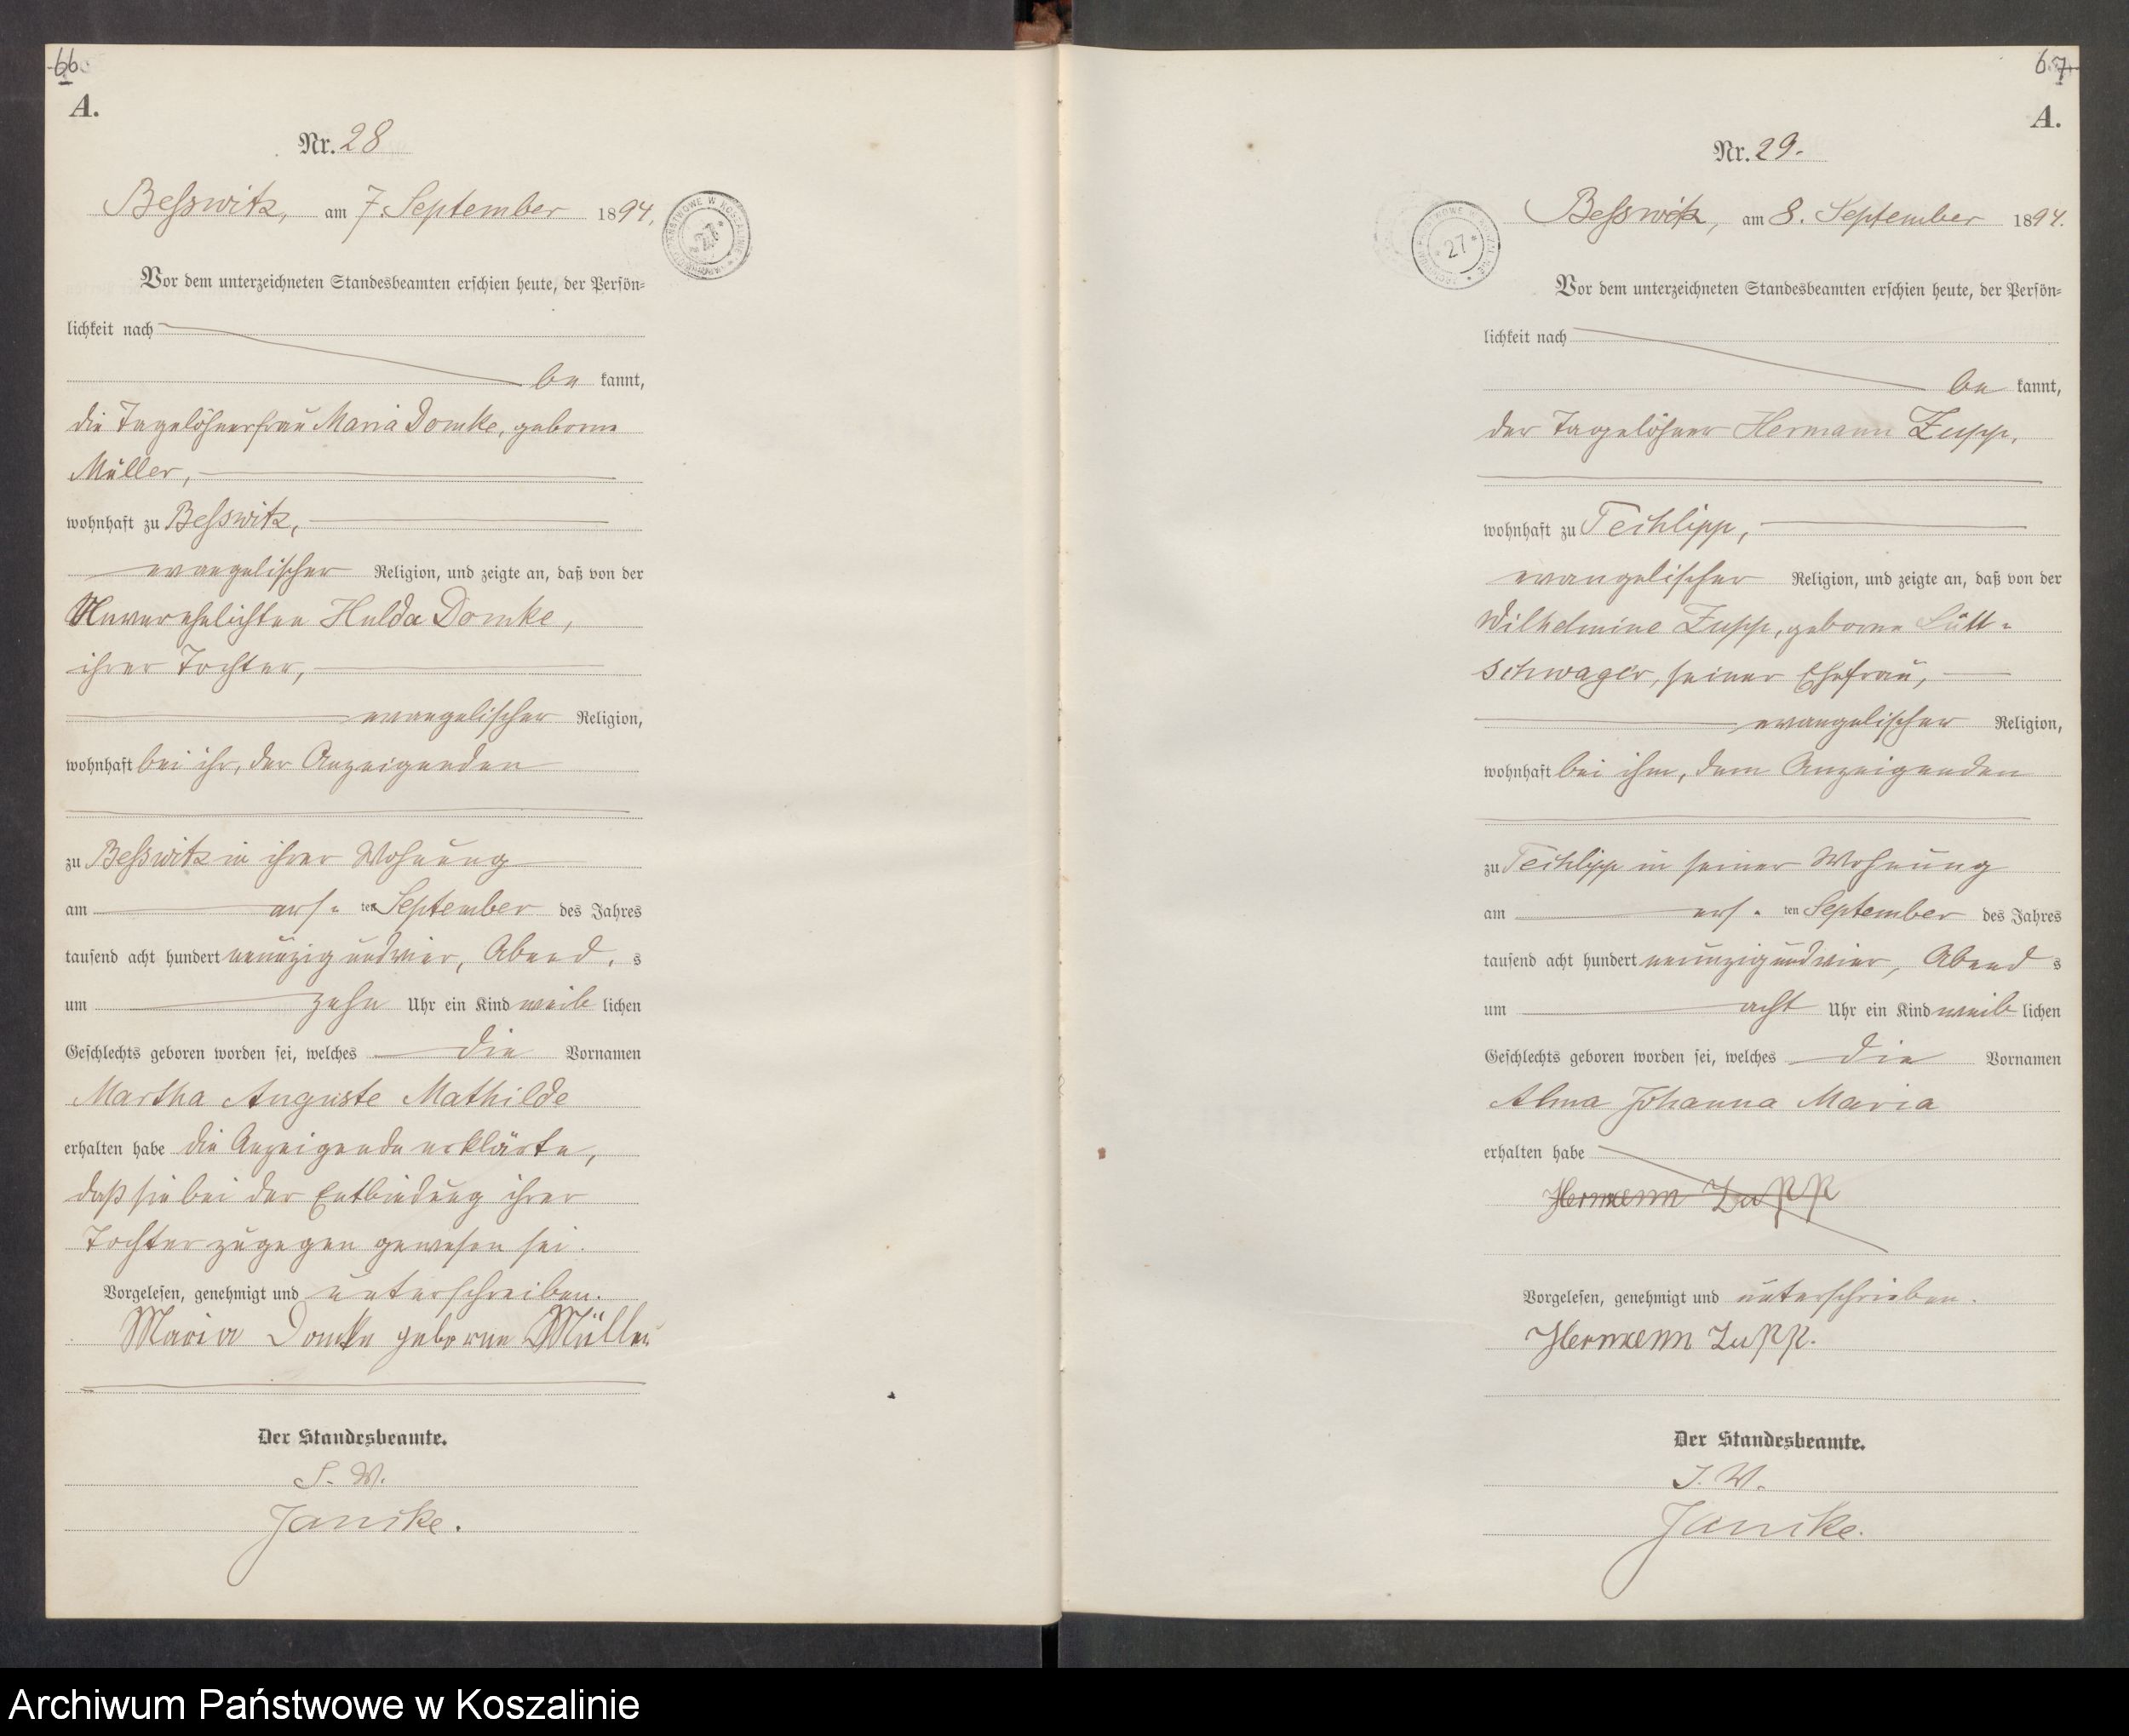 66
A.
Nr. 28
Beßwitz, am 7. September 1894.
Vor dem unterzeichneten Standesbeamten erschien heute, der Persön-
lichkeit nach
be kannt,
die Tagelöhnerfrau Maria Domke, geborne
Müller,
wohnhaft zu Beßwitz,
evangelischer Religion, und zeigte an, daß von der
Unverehelichten Hulda Domke,
ihrer Tochter,
evangelischer Religion,
wohnhaft bei ihr, der Anzeigenden
zu Beßwitz in ihrer Wohnung
am ers-ten September des Jahres
tausend acht hundert neunzig und vier, Abend, s
um zehn Uhr ein Kind weib lichen
Geschlechts geboren worden sei, welches die Vornamen
Martha Auguste Mathilde
erhalten habe die Anzeigende erklärte,
daß sie bei der Entbindung ihrer
Tochter zugegen gewesen sei.
Vorgelesen, genehmigt und unterschreiben.
Maria Domke geborne Müller
Der Standesbeamte.
J. V.
Janike.
67
A.
Nr. 29.
Beßwitz, am 8. September 1894.
Vor dem unterzeichneten Standesbeamten erschien heute, der Persön-
lichkeit nach
be kannt,
der Tagelöhner Hermann Zupp,
wohnhaft zu Techlipp,
evangelischer Religion, und zeigte an, daß von der
Wilhelmine Zupp, geborne Lütt-
schwager, seiner Ehefrau,
evangelischer Religion,
wohnhaft bei ihm, dem Anzeigenden
zu Techlipp in seiner Wohnung
am ers-ten September des Jahres
tausend acht hundert neunzig und vier, Abend s
um acht Uhr ein Kind weib lichen
Geschlechts geboren worden sei, welches die Vornamen
Alma Johanna Maria
erhalten habe
Hermann Zupp
Vorgelesen, genehmigt und unterschrieben.
Hermann Zupp.
Der Standesbeamte.
J. V.
Janike.
27
Archiwum Państwowe w Koszalinie